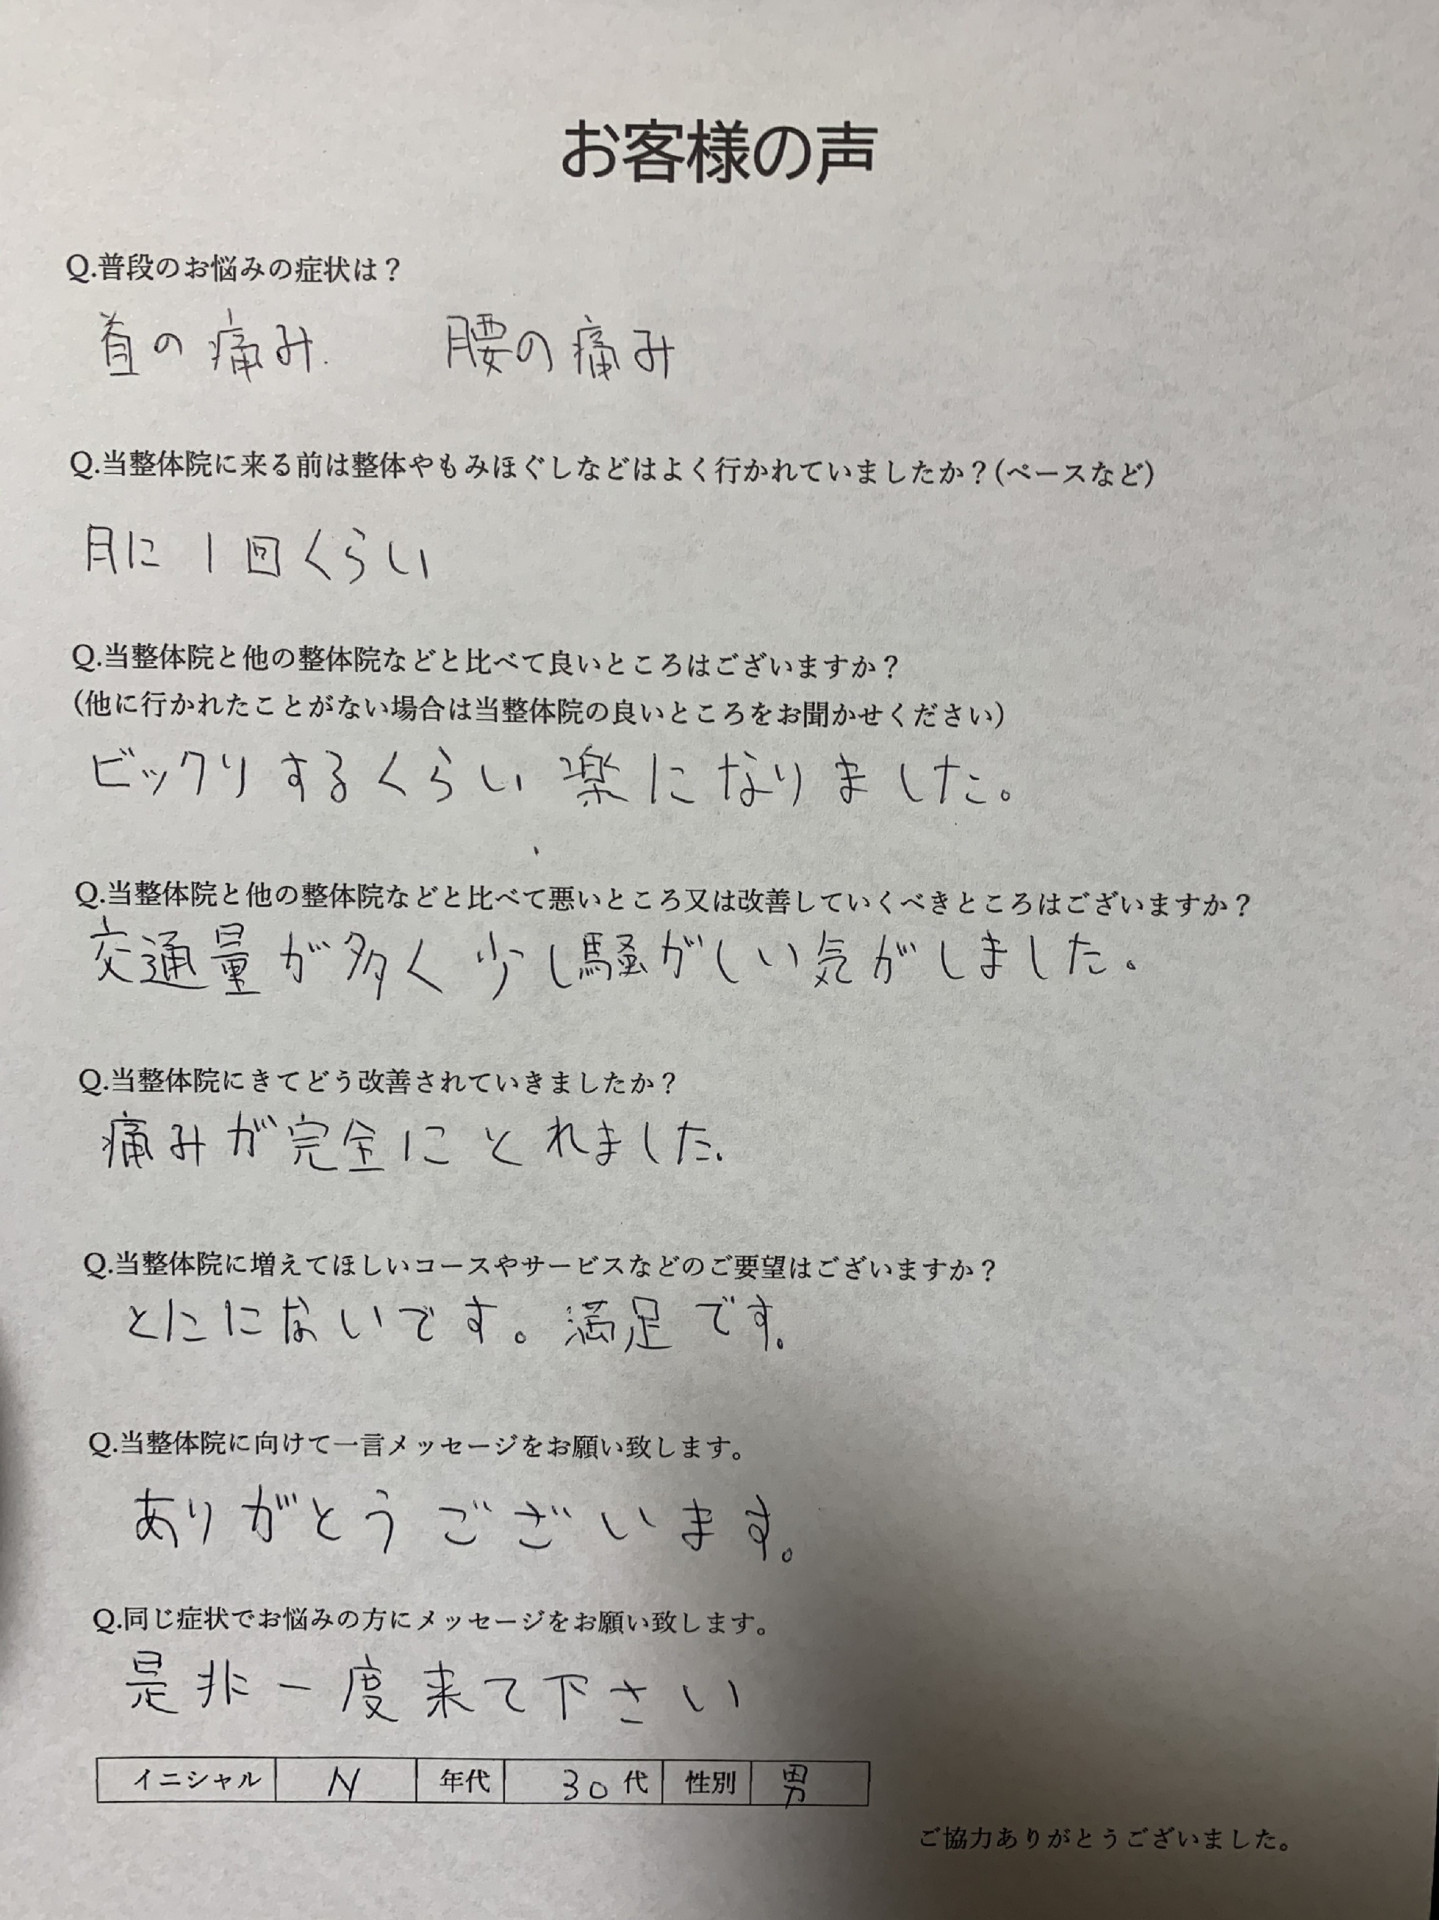 お客様の声
Q.普段のお悩みの症状は？
首の痛み.　腰の痛み
Q.当整体院に来る前は整体やもみほぐしなどはよく行かれていましたか？(ペースなど)
月に1回くらい
Q.当整体院と他の整体院などと比べて良いところはございますか？
(他に行かれたことがない場合は当整体院の良いところをお聞かせください)
ビックリするくらい楽になりました。
Q.当整体院と他の整体院などと比べて悪いところ又は改善していくべきところはございますか？
交通量が多く少し騒がしい気がしました。
Q.当整体院にきてどう改善されていきましたか？
痛みが完全にとれました.
Q.当整体院に増えてほしいコースやサービスなどのご要望はございますか？
とくにないです。満足です。
Q.当整体院に向けて一言メッセージをお願い致します。
ありがとうございます。
Q.同じ症状でお悩みの方にメッセージをお願い致します。
是非一度来て下さい
イニシャル N 年代 30代 性別 男
ご協力ありがとうございました。